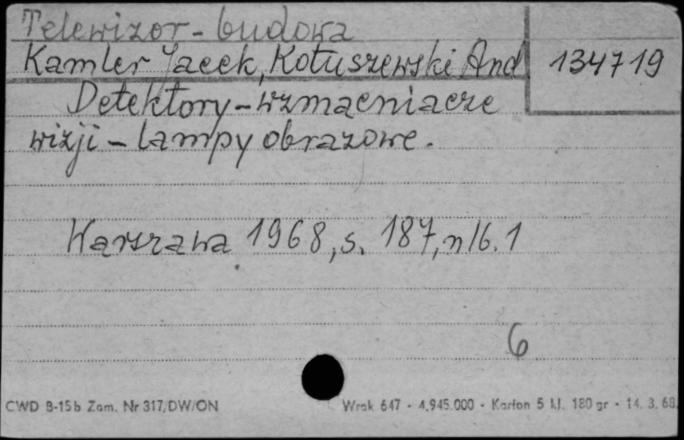 Telewizor - budowa
Kamler Jacek, Kotuszewski And
134719
Detektory - wzmacniacze
wizji - lampy obrazowe.
Warszawa 1968, s. 187, nlb. 1
6
CWD B-15b Zam. Nr 317, DW/ON
Wrok 647 - 4.945.000 - Karton 5 kl. 180 gr - 14. 3. 68.